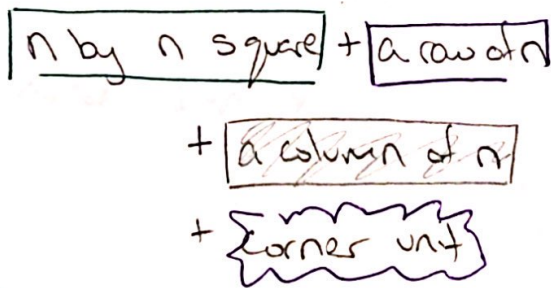 n by n square + a row of n
+ a column of n
+ corner unit